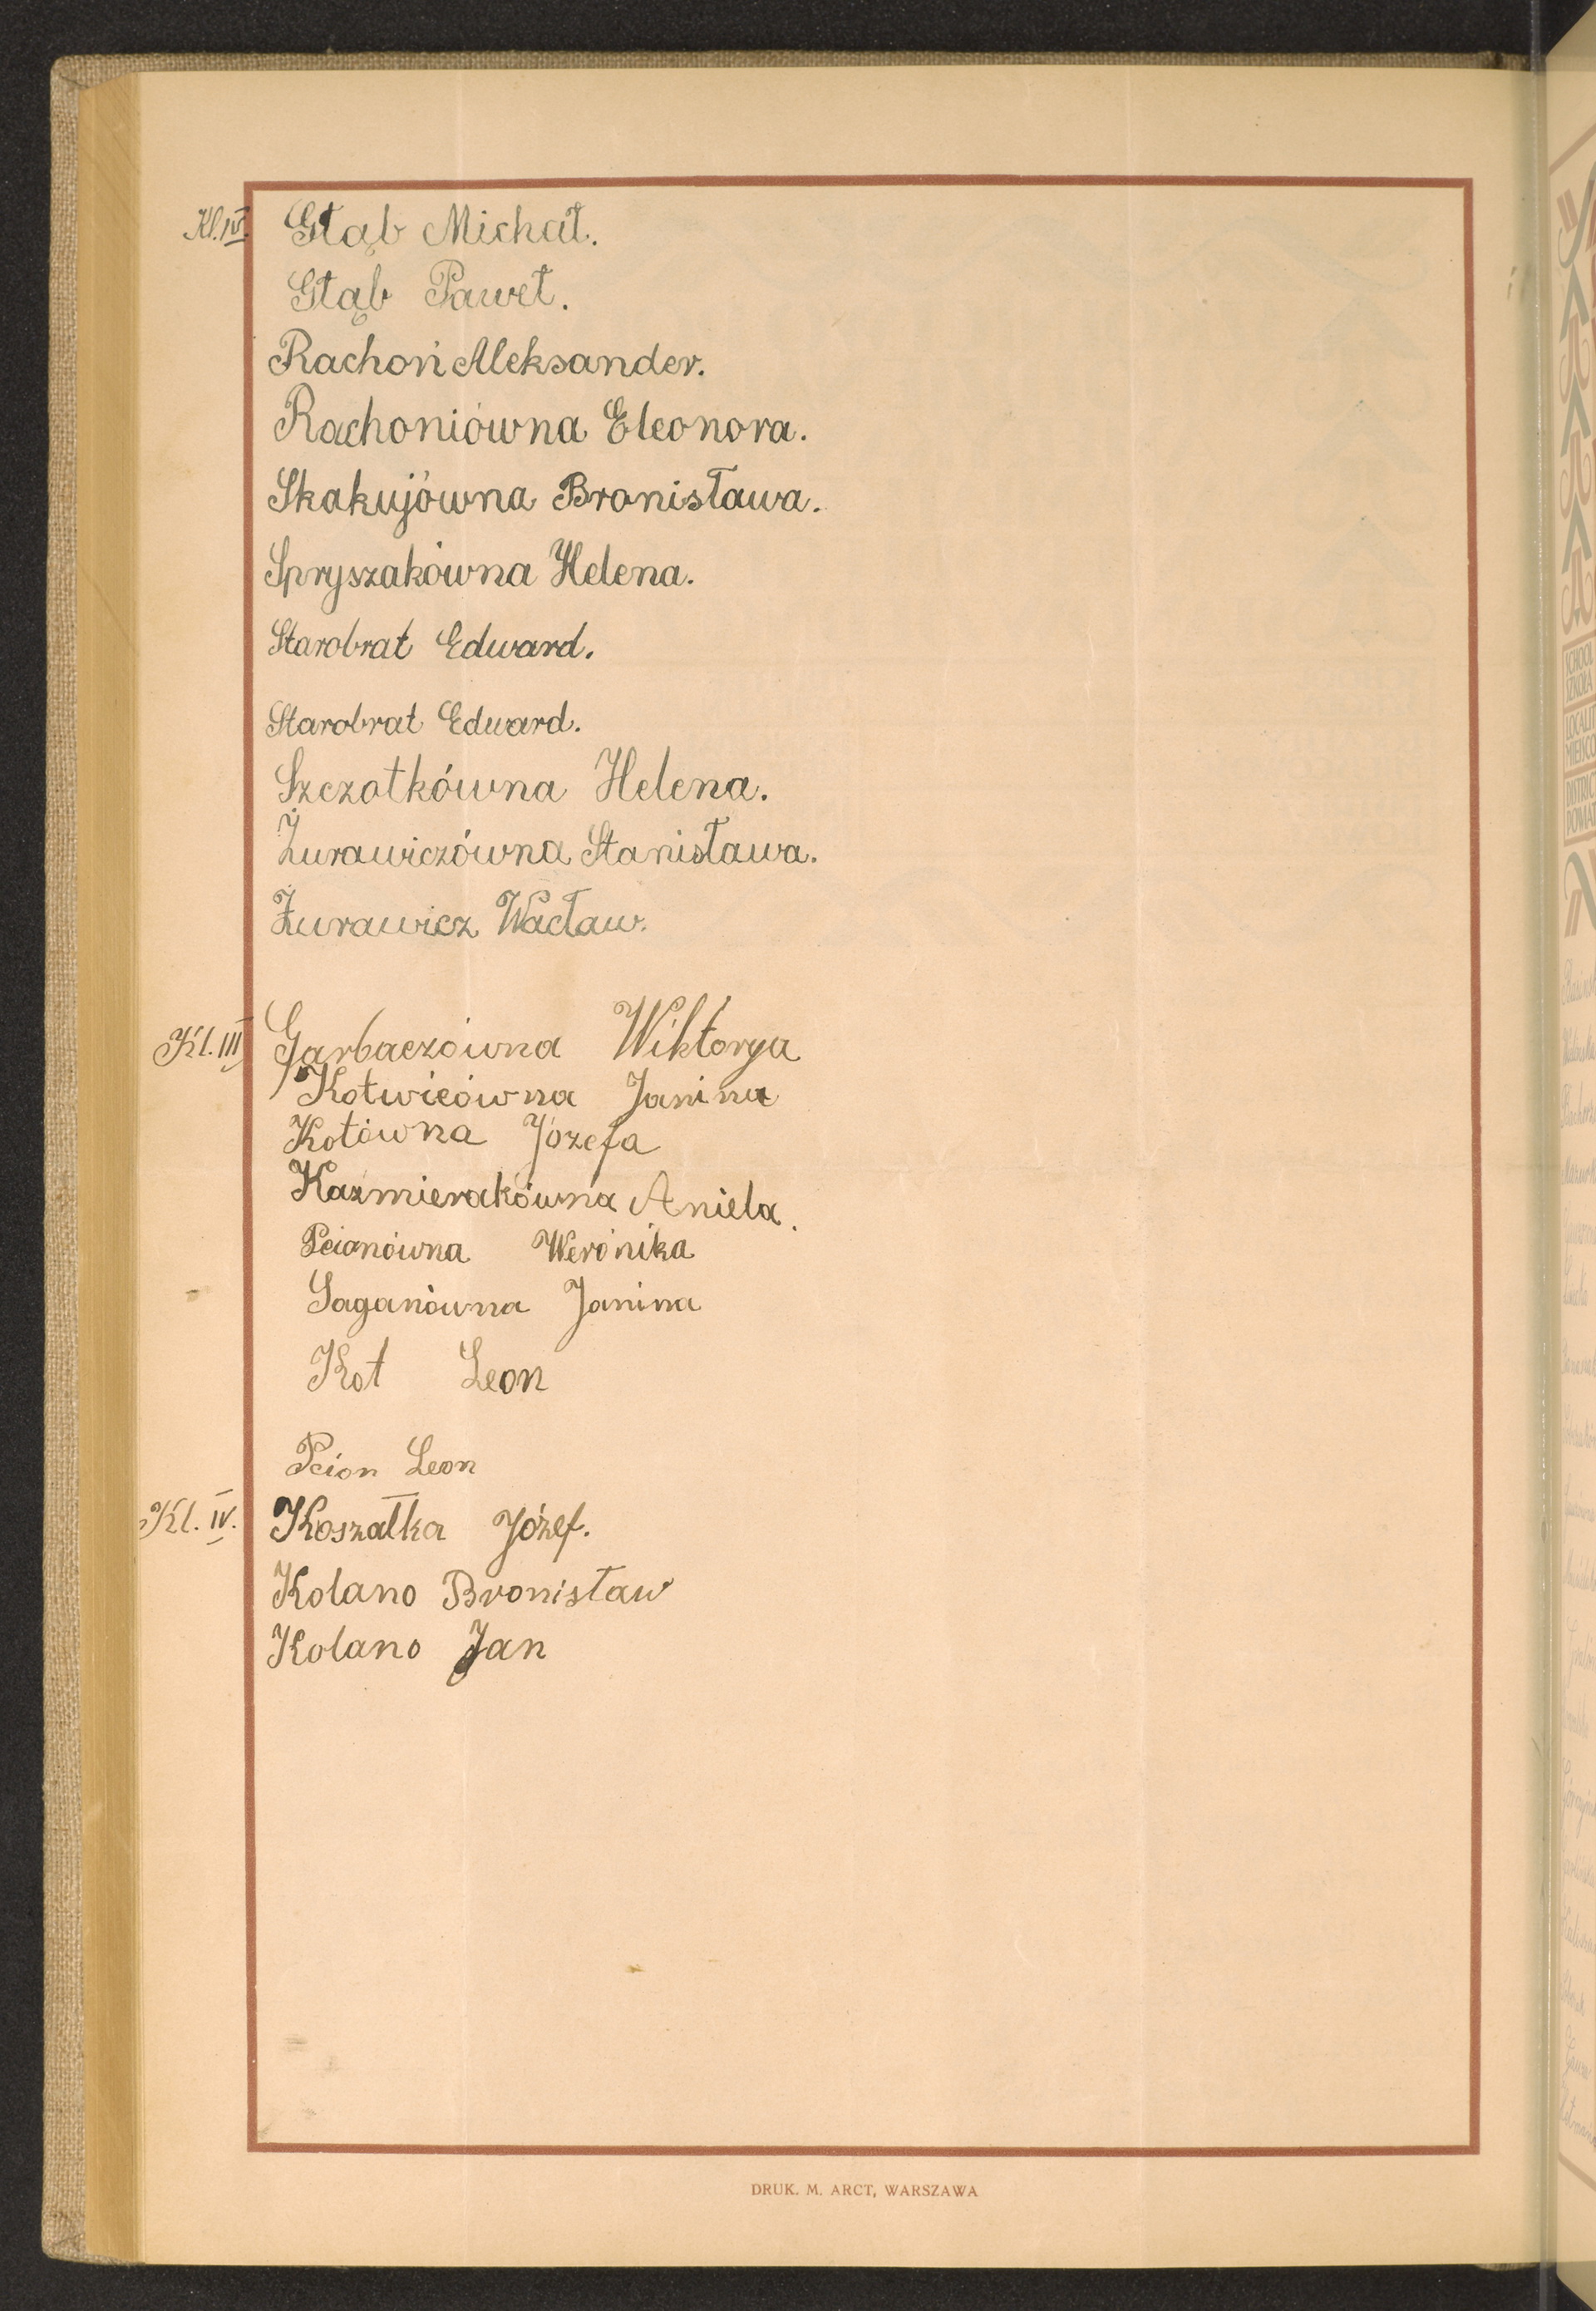 Kl. IV. Głąb Michał.
Głąb Paweł.
Rachoń Aleksander.
Rachoniówna Eleonora.
Skakujówna Bronisława.
Spryszakówna Helena.
Starobrat Edward.
Starobrat Edward.
Szczotkówna Helena.
Żurawiczówna Stanisława.
Żurawicz Wacław.
Kl. III Garbaczówna Wiktorya
Kotwicówna Janina
Kotówna Józefa
Kaźmierakówna Aniela.
Pcionówna Weronika
Saganówna Janina
Kot Leon
Pcion Leon
Kl. IV. Koszałka Józef.
Kolano Bronisław
Kolano Jan
DRUK. M. ARCT, WARSZAWA
SCHOOL
SZKOŁA